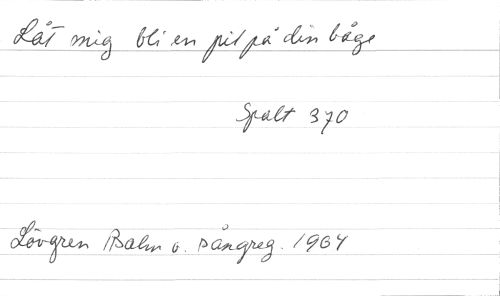 Låt mig bli en pil på din båge
Spalt 370
Lövgren Psalm o. sångreg. 1964